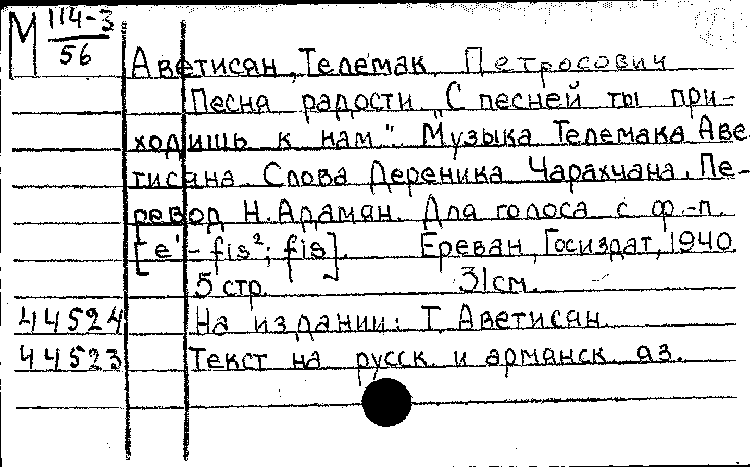 М 114-3
56
Аветисян, Телемак Петросович
Песня радости „С песней ты при-
ходишь к нам". Музыка Телемака Аве-
тисяна. Слова Дереника Чарахчана. Пе-
ревод Н. Адамян. Для голоса с ф.-п.
[e' - fis²; fis]. Ереван, Госиздат, 1940.
5 стр. 31см.
44524 На издании: Т. Аветисян.
44523 Текст на русск. и армянск. яз.